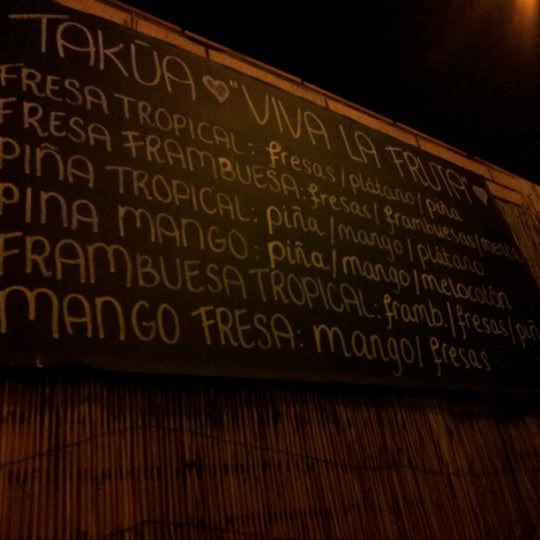 TAKŪA ♡ "VIVA LA FRUTA" ♡
FRESA TROPICAL: fresas/plátano/piña
FRESA FRAMBUESA: fresas/frambuesas/menta
PIÑA TROPICAL: piña/mango/plátano
PINA MANGO: piña/mango/melocotón
FRAMBUESA TROPICAL: framb./fresas/piñ
MANGO FRESA: mango/fresas